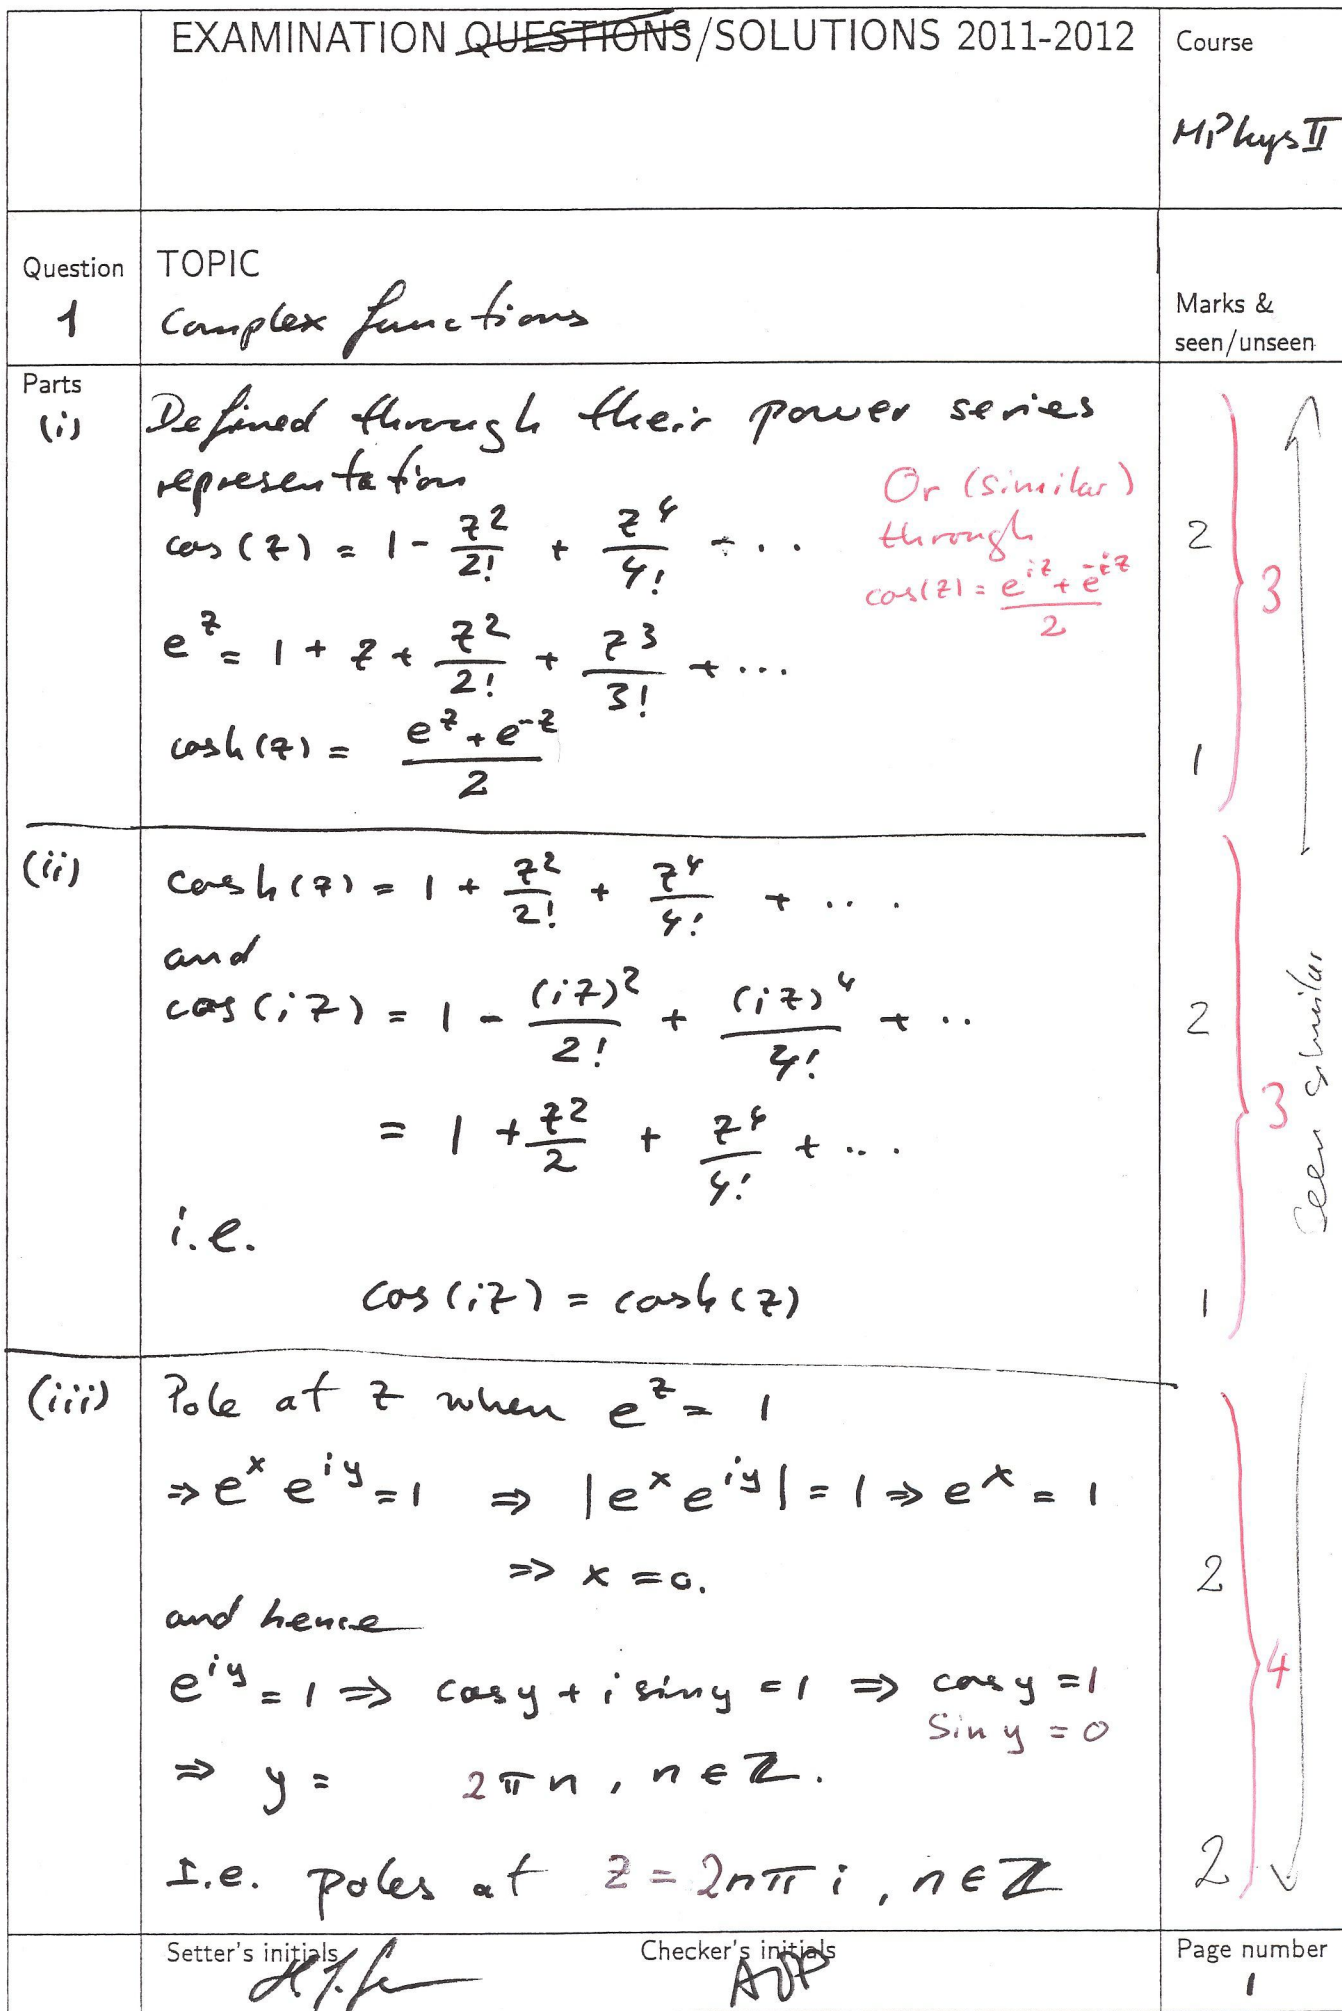 EXAMINATION QUESTIONS/SOLUTIONS 2011-2012
Course
MPhys II
Question
1
TOPIC
Complex functions
Marks &
seen/unseen
Parts
(i)
Defined through their power series
representation
cos(z) = 1 - z²/2! + z⁴/4! - ...
Or (similar)
through
cos(z) = (e^{iz} + e^{-iz})/2
2
3
e^z = 1 + z + z²/2! + z³/3! + ...
cosh(z) = (e^z + e^{-z})/2
1
(ii)
cosh(z) = 1 + z²/2! + z⁴/4! + ...
and
cos(iz) = 1 - (iz)²/2! + (iz)⁴/4! + ..
2
= 1 + z²/2 + z⁴/4! + ...
3
Seen similar
i.e.
cos(iz) = cosh(z)
1
(iii)
Pole at z when e^z = 1
⇒ e^x e^{iy} = 1 ⇒ |e^x e^{iy}| = 1 ⇒ e^x = 1
⇒ x = 0.
2
and hence
e^{iy} = 1 ⇒ cos y + i sin y = 1 ⇒ cos y = 1
sin y = 0
4
⇒ y = 2πn, n ∈ ℤ.
I.e. poles at z = 2nπi, n ∈ ℤ
2
Setter's initials
Checker's initials
Page number
1